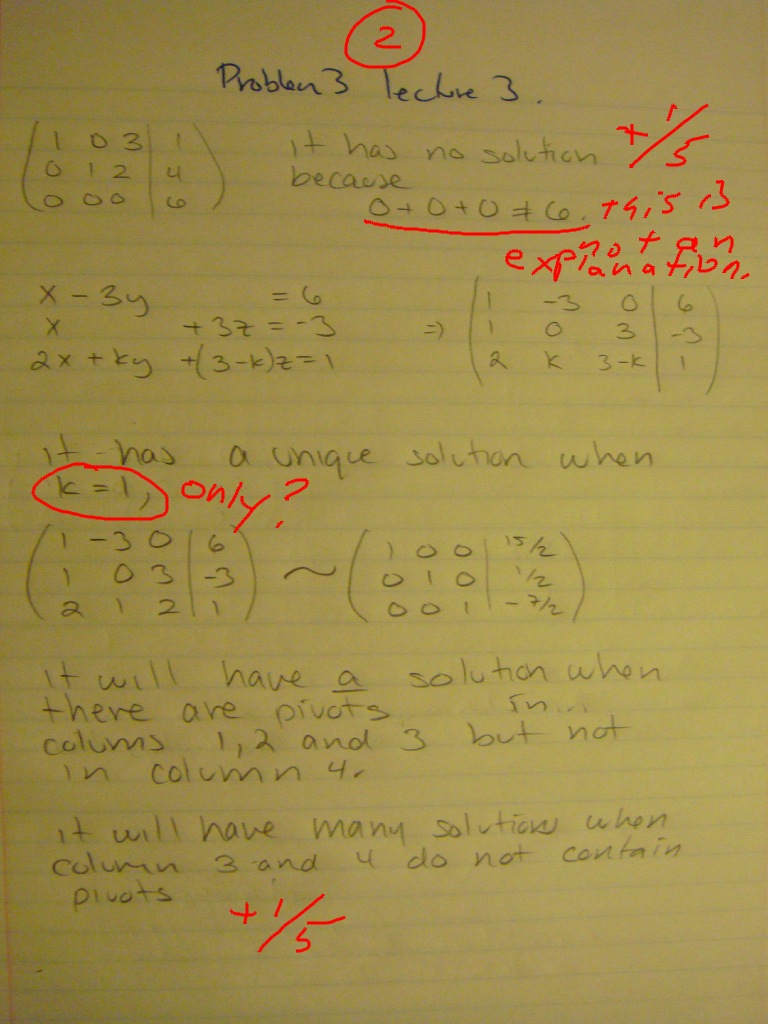 2
Problem 3 lecture 3.
1 0 3 | 1
0 1 2 | 4
0 0 0 | 6
it has no solution
because
0+0+0≠6.
+1/5
this is
not an
explanation.
x - 3y = 6
x + 3z = -3
2x + ky + (3-k)z = 1
⇒
1 -3 0 | 6
1 0 3 | -3
2 k 3-k | 1
it has a unique solution when
k = 1, only?
1 -3 0 | 6
1 0 3 | -3
2 1 2 | 1
~
1 0 0 | 15/2
0 1 0 | 1/2
0 0 1 | -7/2
it will have a solution when
there are pivots in
colums 1, 2 and 3 but not
in column 4.
it will have many solutions when
column 3 and 4 do not contain
pivots
+1/5